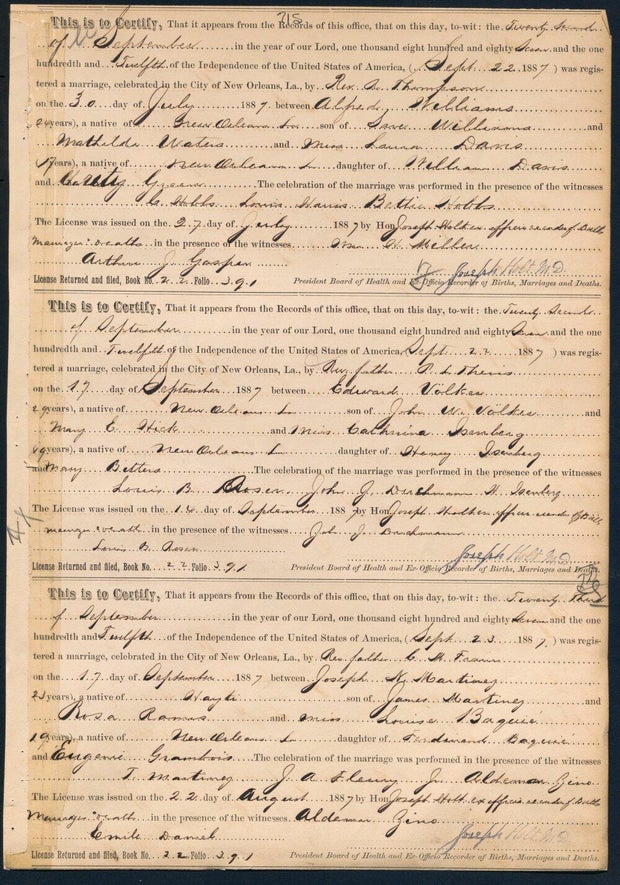 715
This is to Certify, That it appears from the Records of this office, that on this day, to-wit: the Twenty Second
of September in the year of our Lord, one thousand eight hundred and eighty Seven and the one
hundredth and Twelfth of the Independence of the United States of America, (Sept 22 1887) was regis-
tered a marriage, celebrated in the City of New Orleans, La., by Rev. A. Thompson
on the 30 day of July 1887 between Alfred Williams
years), a native of New Orleans La son of Williams and
Mathilda Waters and Miss Laura Davis
years), a native of New Orleans La daughter of William Davis
and Green The celebration of the marriage was performed in the presence of the witnesses
C Hobbs Louis Harris Bettie Hobbs
The License was issued on the 27 day of July 1887 by Hon Joseph Holt ex officio recorder of Births
marriages & deaths in the presence of the witnesses. Wm H Miller
Arthur J Gasper
Joseph Holt M.D.
License Returned and filed, Book No. 22 Folio 391 President Board of Health and Ex-Officio Recorder of Births, Marriages and Deaths.
This is to Certify, That it appears from the Records of this office, that on this day, to-wit: the Twenty Second
of September in the year of our Lord, one thousand eight hundred and eighty Seven and the one
hundredth and Twelfth of the Independence of the United States of America, (Sept 22 1887) was regis-
tered a marriage, celebrated in the City of New Orleans, La., by Rev father
on the 17 day of September 1887 between Edward Volker
29 years), a native of New Orleans La son of John Wm Volker and
Mary E Hick and Miss Cathrina Isenberg
years), a native of New Orleans La daughter of Henry Isenberg
and Mary Betters The celebration of the marriage was performed in the presence of the witnesses
Louis B Rosen John J H. Isenberg
The License was issued on the day of September 1887 by Hon Joseph Holt ex officio recorder of Births
marriages & deaths in the presence of the witnesses. J
Louis B. Rosen
Joseph Holt M.D.
License Returned and filed, Book No. 22 Folio 391 President Board of Health and Ex-Officio Recorder of Births, Marriages and Deaths.
This is to Certify, That it appears from the Records of this office, that on this day, to-wit: the Twenty Third
of September in the year of our Lord, one thousand eight hundred and eighty Seven and the one
hundredth and Twelfth of the Independence of the United States of America, (Sept 23 1887) was regis-
tered a marriage, celebrated in the City of New Orleans, La., by Rev father C M
on the 17 day of September 1887 between Joseph N. Martinez
23 years), a native of Hayti son of James Martinez and
Rosa Ramos and Miss Louise Baquié
19 years), a native of New Orleans La daughter of Ferdinand Baquié
and Eugenie Grambois The celebration of the marriage was performed in the presence of the witnesses
T. Martinez J A Fleury Jr Aldemar Zino
The License was issued on the 22 day of August 1887 by Hon Joseph Holt ex officio recorder of Births
marriages & deaths in the presence of the witnesses. Aldemar Zino
Emile Daniel
Joseph Holt M.D.
License Returned and filed, Book No. 22 Folio 391 President Board of Health and Ex-Officio Recorder of Births, Marriages and Deaths.